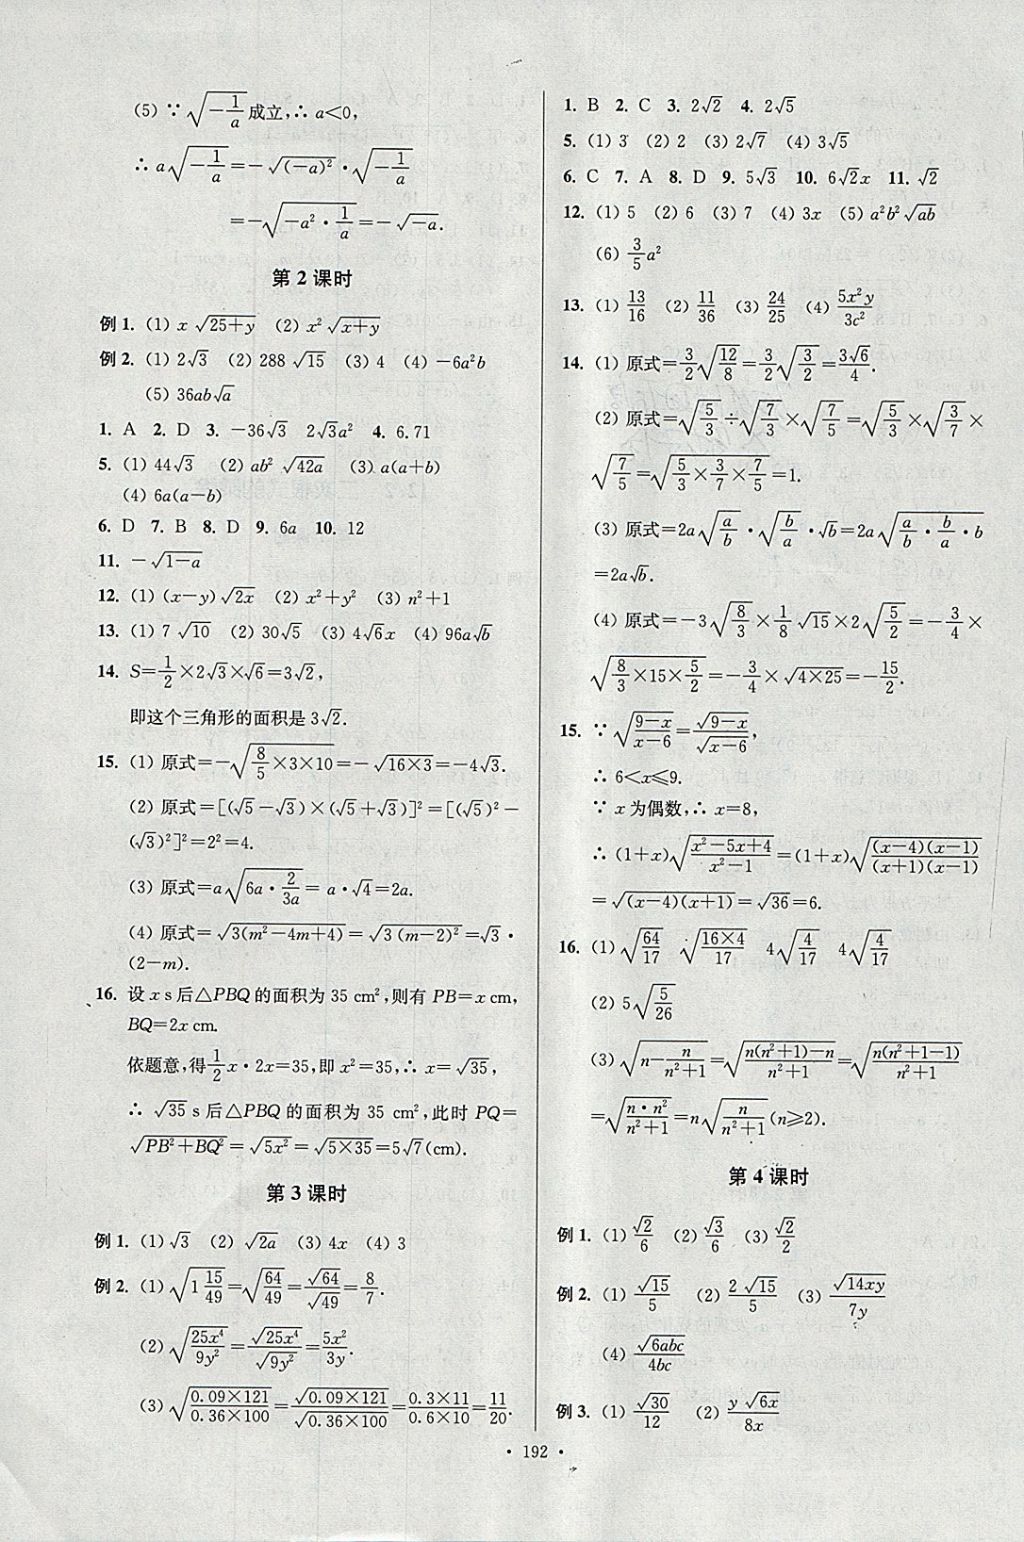 (5) ∵ √(-1/a) 成立,∴ a<0,
∴ a√(-1/a)=-√((-a)²)·√(-1/a)
=-√(-a²·1/a)=-√(-a).
第 2 课时
例 1. (1) x√(25+y) (2) x²√(x+y)
例 2. (1) 2√3 (2) 288√15 (3) 4 (4) -6a²b
(5) 36ab√a
1. A 2. D 3. -36√3 2√3a² 4. 6.71
5. (1) 44√3 (2) ab²√(42a) (3) a(a+b)
(4) 6a(a-b)
6. D 7. B 8. D 9. 6a 10. 12
11. -√(1-a)
12. (1) (x-y)√(2x) (2) x²+y² (3) n²+1
13. (1) 7√10 (2) 30√5 (3) 4√6x (4) 96a√b
14. S=1/2×2√3×√6=3√2,
即这个三角形的面积是 3√2.
15. (1) 原式=-√(8/5×3×10)=-√(16×3)=-4√3.
(2) 原式=[(√5-√3)×(√5+√3)]²=[(√5)²-
(√3)²]²=2²=4.
(3) 原式=a√(6a·2/3a)=a·√4=2a.
(4) 原式=√(3(m²-4m+4))=√(3(m-2)²)=√3·
(2-m).
16. 设 x s 后△PBQ 的面积为 35 cm²,则有 PB=x cm,
BQ=2x cm.
依题意,得1/2x·2x=35,即 x²=35,∴ x=√35,
∴ √35 s 后△PBQ 的面积为 35 cm²,此时 PQ=
√(PB²+BQ²)=√(5x²)=√(5×35)=5√7(cm).
第 3 课时
例 1. (1) √3 (2) √(2a) (3) 4x (4) 3
例 2. (1) √(1 15/49)=√(64/49)=√64/√49=8/7.
(2) √(25x⁴/9y²)=√(25x⁴)/√(9y²)=5x²/3y.
(3) √((0.09×121)/(0.36×100))=√(0.09×121)/√(0.36×100)=(0.3×11)/(0.6×10)=11/20.
1. B 2. C 3. 2√2 4. 2√5
5. (1) 3 (2) 2 (3) 2√7 (4) 3√5
6. C 7. A 8. D 9. 5√3 10. 6√2x 11. √2
12. (1) 5 (2) 6 (3) 7 (4) 3x (5) a²b²√(ab)
(6) 3/5a²
13. (1) 13/16 (2) 11/36 (3) 24/25 (4) 5x²y/3c²
14. (1) 原式=3/2√(12/8)=3/2√(3/2)=3√6/4.
(2) 原式=√(5/3)÷√(7/3)×√(7/5)=√(5/3)×√(3/7)×
√(7/5)=√(5/3×3/7×7/5)=1.
(3) 原式=2a√(a/b)·√(b/a)·√b=2a√(a/b·b/a·b)
=2a√b.
(4) 原式=-3√(8/3)×1/8√15×2√(5/2)=-3/4×
√(8/3×15×5/2)=-3/4×√(4×25)=-15/2.
15. ∵ √((9-x)/(x-6))=√(9-x)/√(x-6),
∴ 6<x≤9.
∵ x 为偶数,∴ x=8,
∴ (1+x)√((x²-5x+4)/(x²-1))=(1+x)√((x-4)(x-1)/(x+1)(x-1))
=√((x-4)(x+1))=√36=6.
16. (1) √(64/17) √((16×4)/17) 4√(4/17) 4√(4/17)
(2) 5√(5/26)
(3) √(n-n/(n²+1))=√((n(n²+1)-n)/(n²+1))=√(n(n²+1-1)/(n²+1))
=√(n·n²/(n²+1))=n√(n/(n²+1))(n≥2).
第 4 课时
例 1. (1) √2/6 (2) √3/6 (3) √2/2
例 2. (1) √15/5 (2) 2√15/5 (3) √(14xy)/7y
(4) √(6abc)/4bc
例 3. (1) √30/12 (2) y√(6x)/8x
· 192 ·